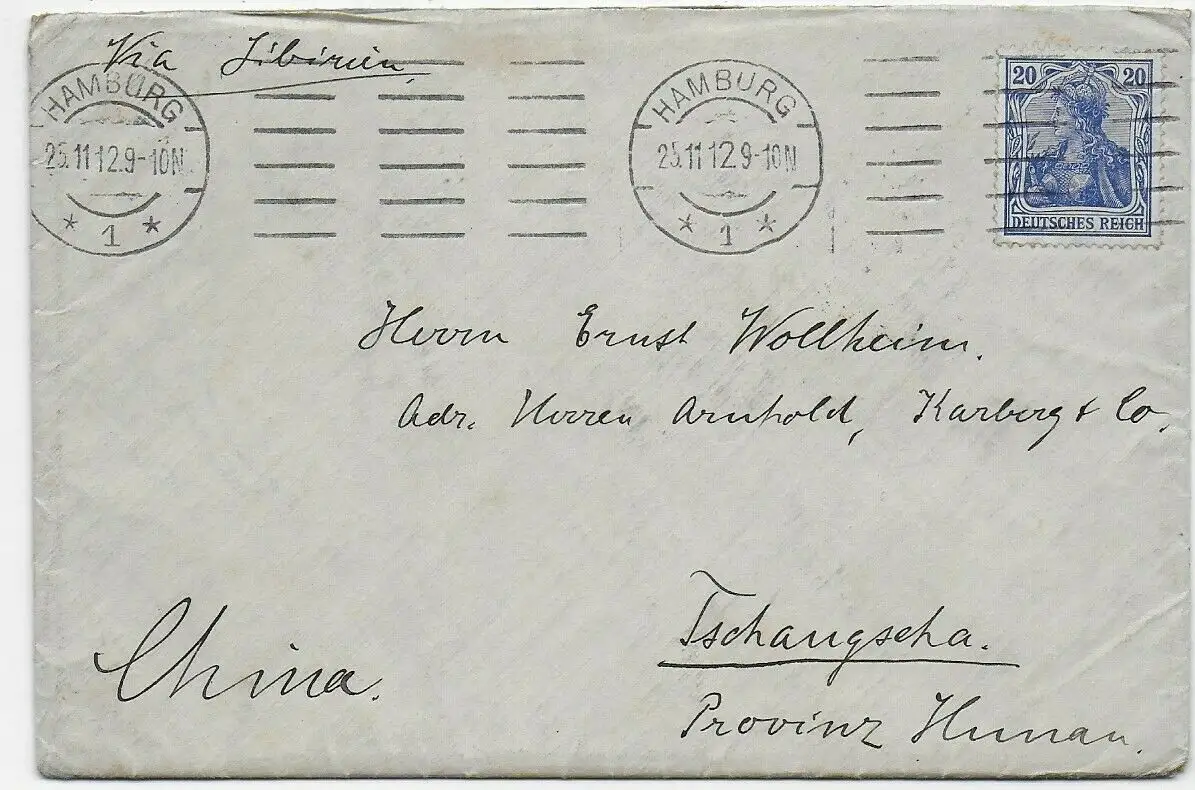 Via Sibirien
HAMBURG
25.11.12.9-10N
* 1 *
HAMBURG
25.11.12.9-10N
* 1 *
20 20
DEUTSCHES REICH
Herrn Ernst Wollheim.
Adr. Herren Arnhold, Karberg & Co.
China.
Tschangscha.
Provinz Hunan.